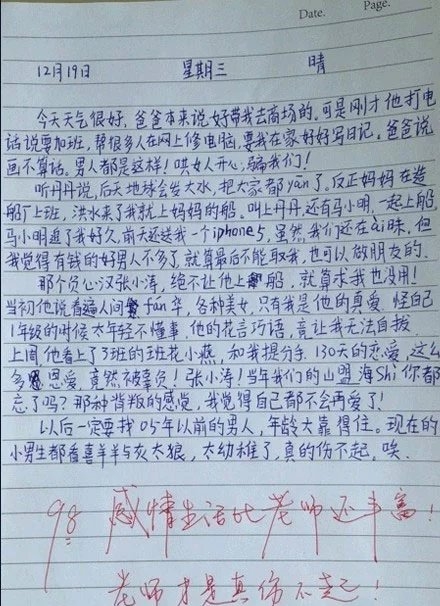 Date. Page.
12月19日 星期三 晴
今天天气很好,爸爸本来说好带我去商场的。可是刚才他打电
话说要加班,帮很多人在网上修电脑,要我在家好好写日记。爸爸说
画不算话。男人都是这样!哄女人开心,骗我们!
听丹丹说,后天地球会发大水,把大家都yān了。反正妈妈在造
船厂上班,洪水来了我就上妈妈的船。叫上丹丹,还有马小明,一起上船,
马小明追了我好久,前天还送我一个iphone5,虽然我们还在ài昧,但
我觉得有钱的好男人不多了,就算最后不能取我,也可以做朋友的。
那个负心汉张小涛,绝不让他上船,就算求我也没用!
当初他说看遍人间fán华,各种美女,只有我是他的真爱,怪自己
1年级的时候太年轻不懂事,他的花言巧语,竟让我无法自拔
上周他看上了3班的班花小燕,和我提分手,130天的恋爱,这么
多恩爱,竟然被辜负!张小涛!当年我们的山盟海Shi你都
忘了吗?那种背叛的感觉,我觉得自己都不会再爱了!
以后一定要找05年以前的男人,年龄大靠得住。现在的
小男生都看喜羊羊与灰太狼,太幼稚了,真的伤不起,唉.
98 感情生活比老师还丰富!
老师才是真伤不起!